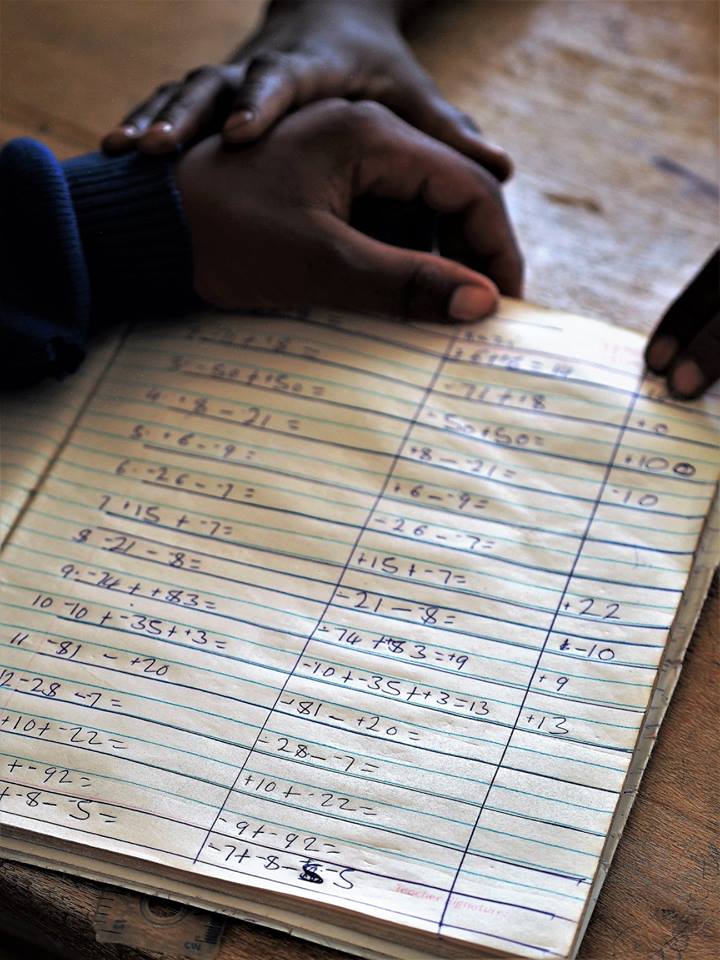 +6++8=14
2. -71 + +8 = -71 + +8 +0
3. -50 + +50 = -50+50= +100
4. +8 - -21 = +8 - -21= -10
5. +6 - -9 = +6 - -9=
6. -26 - -7 = -26 - -7=
7 +15 + -7= +15 + -7= +22
8 -21 - -8= -21 - -8= +-10
9. -74 + +83= -74 + +83=+9 +9
10 -10 + -35 + +3= -10+-35++3=13 +13
11 -81 - +20 -81 - +20=
12 -28 - -7= -28 - -7=
+10+ -22= +10+ -22=
+ -92= -9+ -92=
+ -8 - -5= -7+ -8 - -5
Teacher Signature: